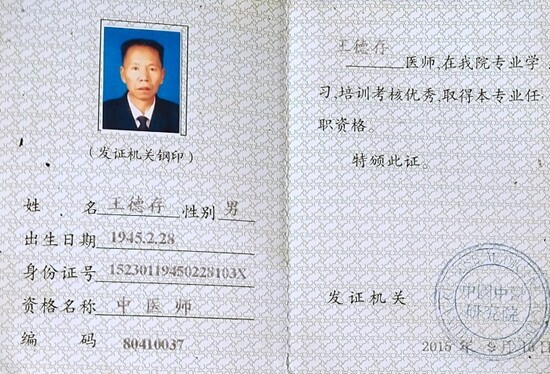 (发证机关钢印)
姓 名 王德存 性别 男
出生日期 1945.2.28
身份证号 15230119450228103X
资格名称 中医师
编 码 80410037
王德存
医师,在我院专业学
习,培训考核优秀,取得本专业任
职资格。
特颁此证。
发证机关
研究院
2015 年 月 日